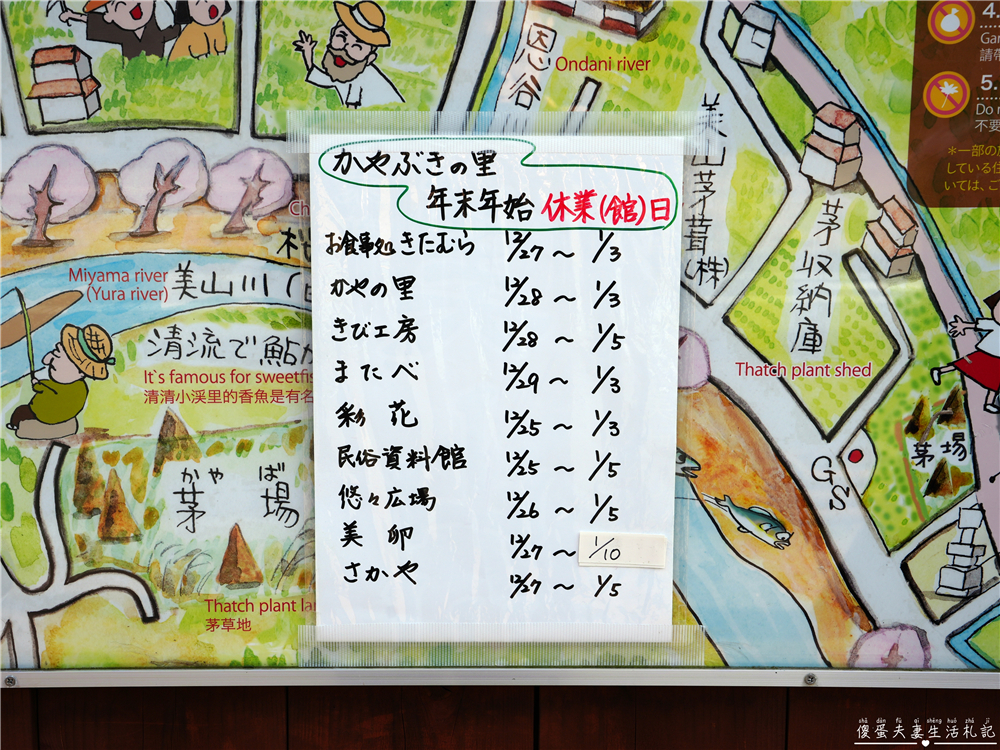 恩谷
Ondani river
4.
Gar
請帶
5.
Do n
不要
＊一部の施
している住
いては、ご
かやぶきの里
年末年始 休業(館)日
お食事処 きたむら 12/27 〜 1/3
かやの里 12/28 〜 1/3
きび工房 12/28 〜 1/5
またべ 12/29 〜 1/3
彩花 12/25 〜 1/3
民俗資料館 12/25 〜 1/5
悠々広場 12/26 〜 1/5
美卵 12/27 〜 1/10
さかや 12/27 〜 1/5
Ch
Miyama river
(Yura river)
美山川(由
清流で鮎が
It`s famous for sweetfis
清清小渓里的香魚是有名
かや ば
茅 場
Thatch plant la
茅草地
美山茅葺(株)
茅収納庫
Thatch plant shed
茅場
GS
shǎ dàn fū qī shēng huó zhá jì
傻蛋夫妻生活札記